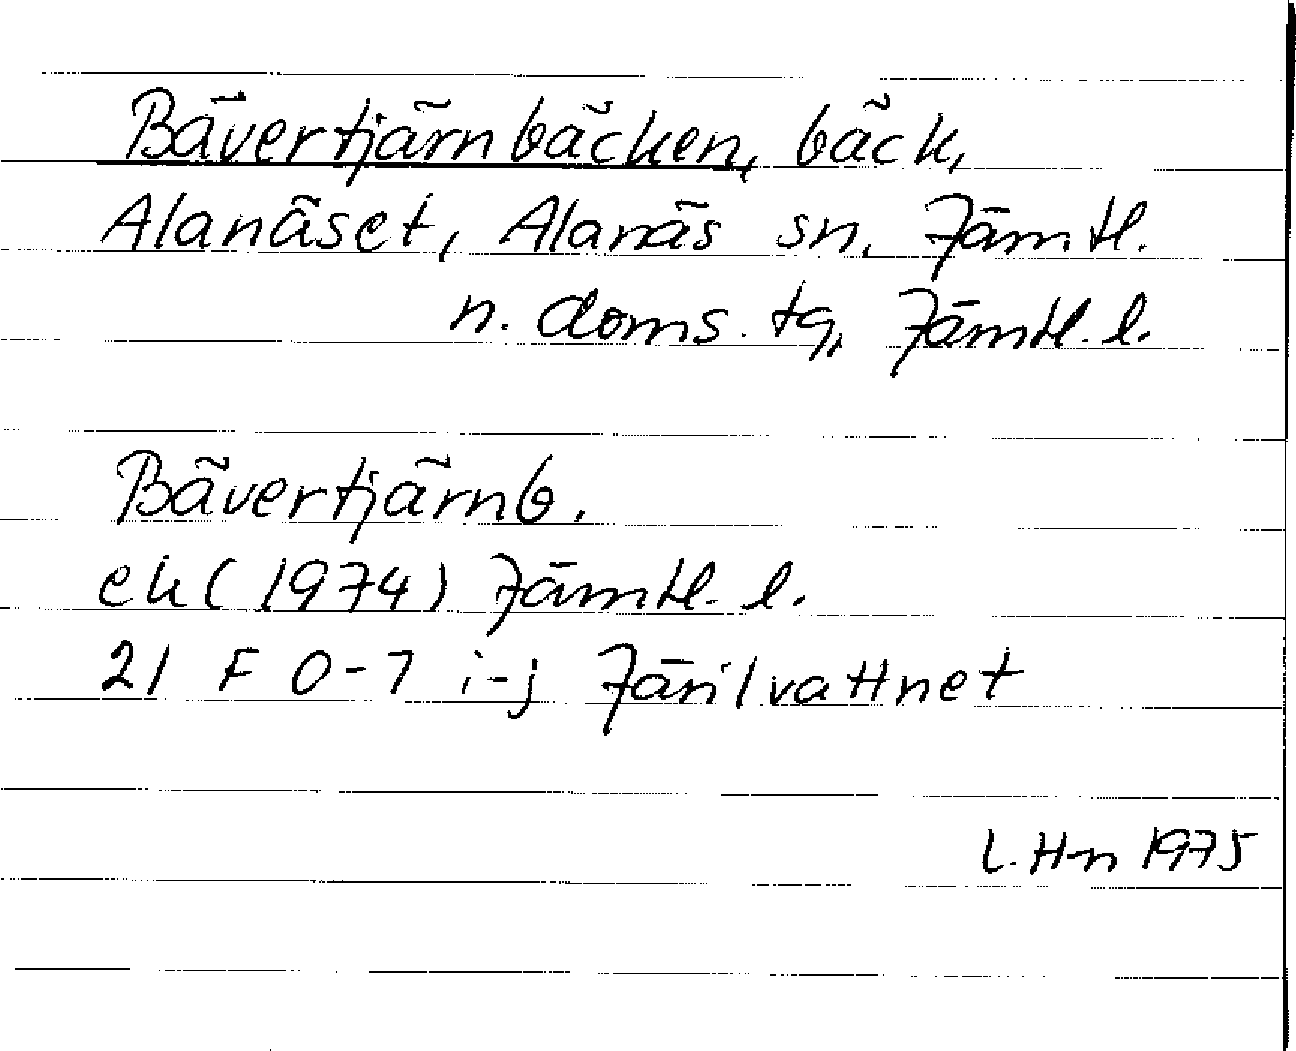 Bävertjärnbäcken, bäck,
Alanäset, Alanäs sn, Jämtl.
n. doms. tg, Jämtl. l.
Bävertjärnb.
ek (1974) Jämtl. l.
21 F 0-7 i-j Järilvattnet
L. H-n 1975